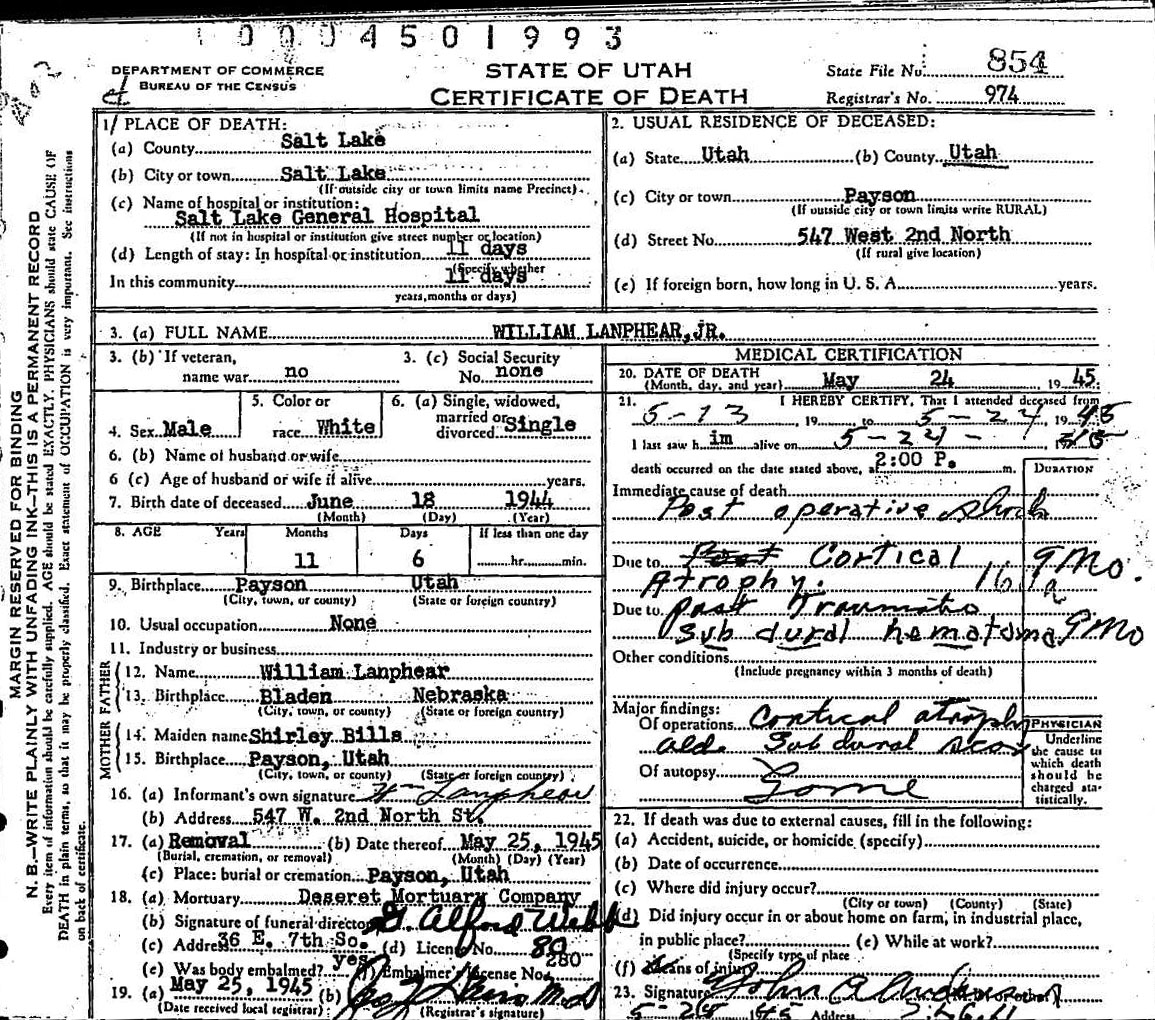 0004501993
DEPARTMENT OF COMMERCE
BUREAU OF THE CENSUS
STATE OF UTAH
CERTIFICATE OF DEATH
State File No. 854
Registrar's No. 974
MARGIN RESERVED FOR BINDING
N. B.—WRITE PLAINLY WITH UNFADING INK—THIS IS A PERMANENT RECORD
Every item of information should be carefully supplied. AGE should be stated EXACTLY. PHYSICIANS should state CAUSE OF
DEATH in plain terms, so that it may be properly classified. Exact statement of OCCUPATION is very important. See instructions
on back of certificate.
1/ PLACE OF DEATH:
(a) County Salt Lake
(b) City or town Salt Lake
(If outside city or town limits name Precinct)
(c) Name of hospital or institution:
Salt Lake General Hospital
(If not in hospital or institution give street number or location)
(d) Length of stay: In hospital or institution 11 days
(Specify whether
In this community 11 days
years, months or days)
2. USUAL RESIDENCE OF DECEASED:
(a) State Utah (b) County Utah
(c) City or town Payson
(If outside city or town limits write RURAL)
(d) Street No. 547 West 2nd North
(If rural give location)
(e) If foreign born, how long in U. S. A. years.
3. (a) FULL NAME WILLIAM LANPHEAR, JR.
3. (b) If veteran, name war no
3. (c) Social Security No. none
4. Sex Male
5. Color or race White
6. (a) Single, widowed, married or divorced Single
6. (b) Name of husband or wife
6 (c) Age of husband or wife if alive years.
7. Birth date of deceased June 18 1944
(Month) (Day) (Year)
8. AGE Years Months Days If less than one day
11 6 hr. min.
9. Birthplace Payson Utah
(City, town, or county) (State or foreign country)
10. Usual occupation None
11. Industry or business
FATHER
12. Name William Lanphear
13. Birthplace Bladen Nebraska
(City, town, or county) (State or foreign country)
MOTHER
14. Maiden name Shirley Bills
15. Birthplace Payson, Utah
(City, town, or county) (State or foreign country)
16. (a) Informant's own signature Wm Lanphear
(b) Address 547 W. 2nd North St.
17. (a) Removal (b) Date thereof May 25, 1945
(Burial, cremation, or removal) (Month) (Day) (Year)
(c) Place: burial or cremation Payson, Utah
18. (a) Mortuary Deseret Mortuary Company
(b) Signature of funeral director G. Alford Webb
(c) Address 36 E. 7th So. (d) License No. 80
(e) Was body embalmed? yes (f) Embalmer's License No. 280
19. (a) May 25, 1945 (b)
(Date received local registrar) (Registrar's signature)
MEDICAL CERTIFICATION
20. DATE OF DEATH
(Month, day, and year) May 24 1945.
21. I HEREBY CERTIFY, That I attended deceased from
5-13, 19 to 5-24, 1945
I last saw him alive on 5-24-
death occurred on the date stated above, a 2:00 P. m.
DURATION
Immediate cause of death
Post operative Shock
Due to Post Cortical 9 Mo.
Atrophy.
Due to Post Traumatic
Sub dural hematoma 9 Mo
Other conditions
(Include pregnancy within 3 months of death)
Major findings:
Of operations Cortical atrophy
old Sub dural scar
Of autopsy
PHYSICIAN
Underline
the cause to
which death
should be
charged sta-
tistically.
22. If death was due to external causes, fill in the following:
(a) Accident, suicide, or homicide (specify)
(b) Date of occurrence
(c) Where did injury occur?
(City or town) (County) (State)
(d) Did injury occur in or about home on farm, in industrial place,
in public place? (e) While at work?
(Specify type of place
(f) Means of injury
23. Signature John A
Address